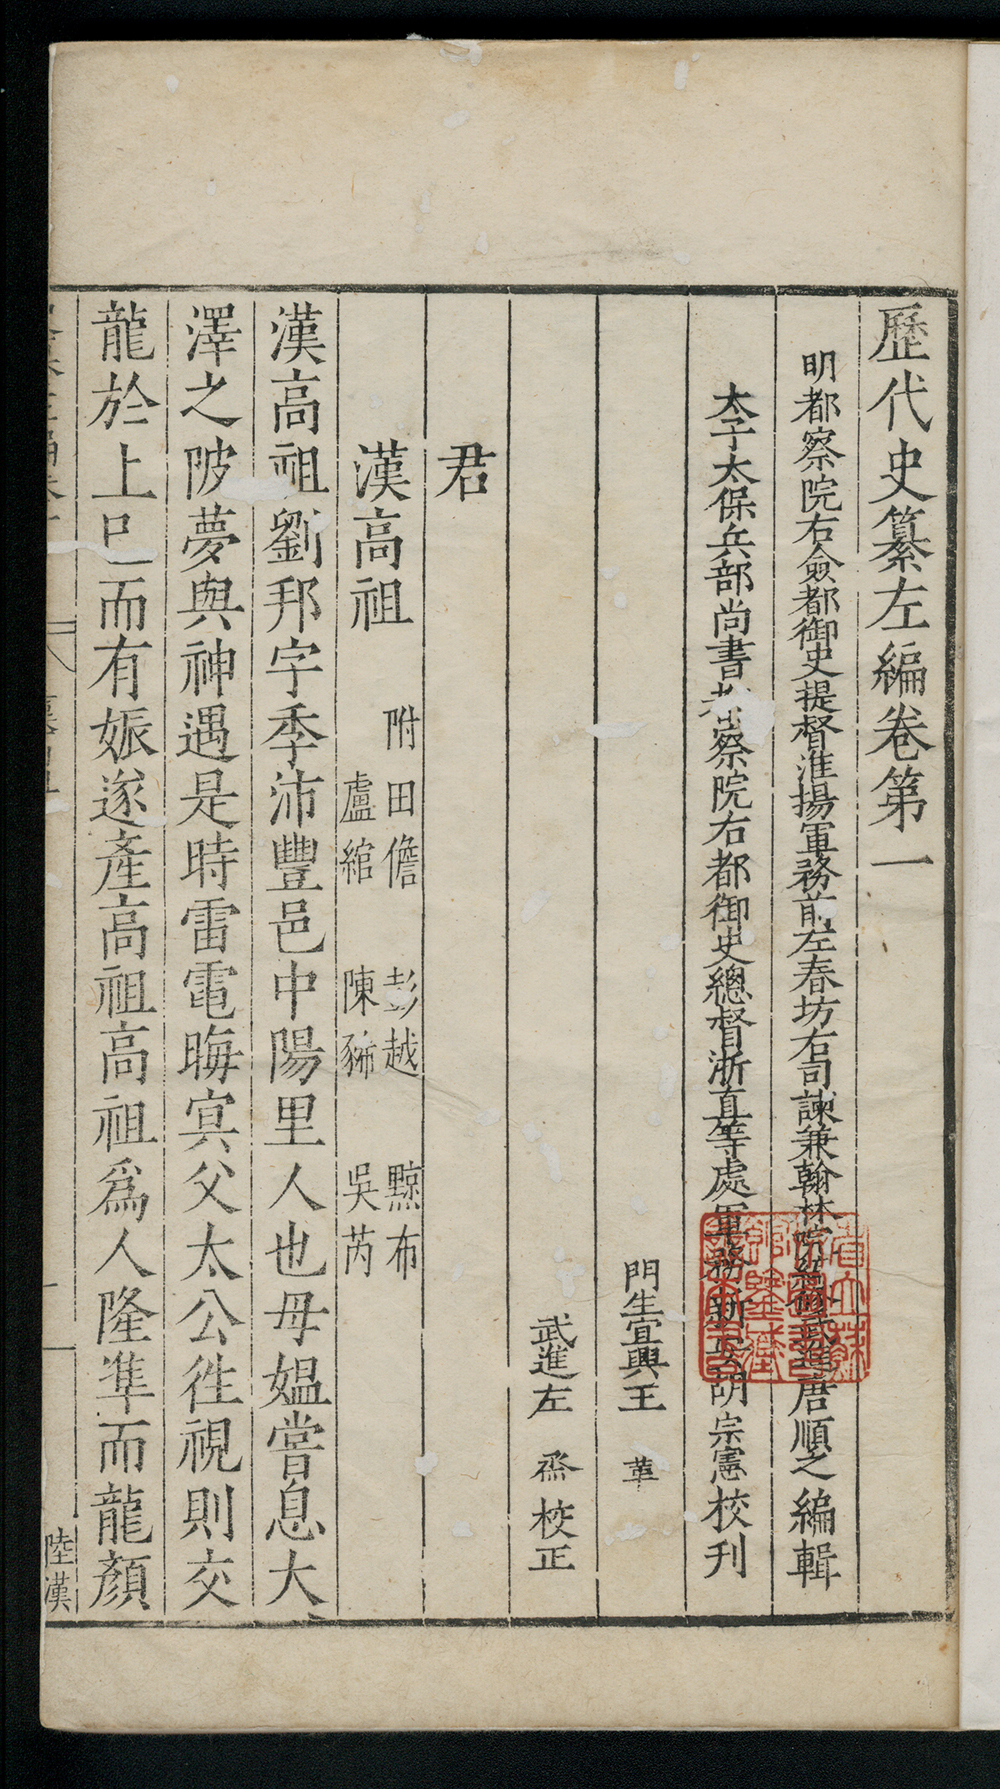 歷代史纂左編卷第一
明都察院右僉都御史提督淮揚軍務前左春坊右司諫兼翰林院編修武進唐順之編輯
太子太保兵部尚書都察院右都御史總督浙直等處軍務新安胡宗憲校刊
門生宜興王革
武進左烝校正
君
漢高祖
附田儋 彭越 黥布
盧綰 陳豨 吳芮
漢高祖劉邦字季沛豐邑中陽里人也母媼嘗息大
澤之陂夢與神遇是時雷電晦冥父太公往視則交
龍於上已而有娠遂產高祖高祖爲人隆準而龍顏
陸漢